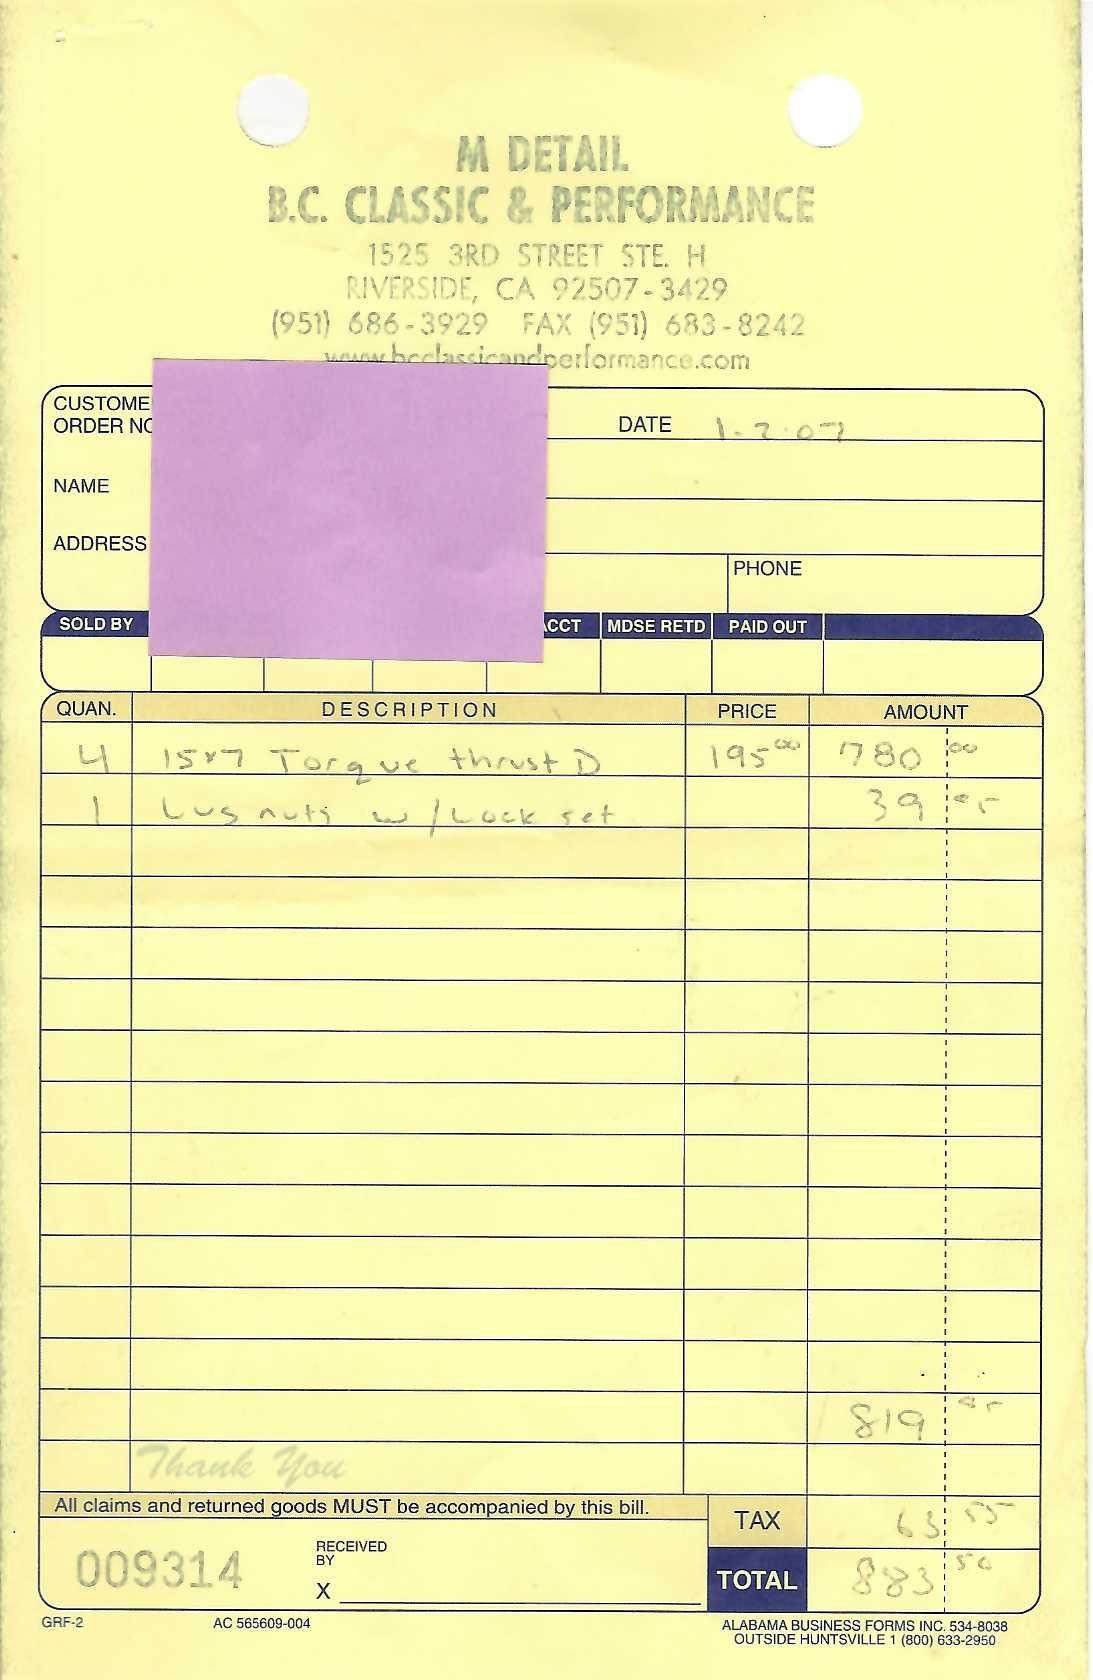 M DETAIL
B.C. CLASSIC & PERFORMANCE
1525 3RD STREET STE. H
RIVERSIDE, CA 92507-3429
(951) 686-3929 FAX (951) 683-8242
www.bcclassicandperformance.com
CUSTOME
ORDER NO
DATE 1.2.07
NAME
ADDRESS
PHONE
SOLD BY ACCT MDSE RETD PAID OUT
QUAN. DESCRIPTION PRICE AMOUNT
4 15x7 Torque thrust D 195 00 780 00
1 Lug nuts w/Lock set 39 95
819 95
Thank You
All claims and returned goods MUST be accompanied by this bill.
TAX 63 55
009314
RECEIVED
BY
X
TOTAL 883 50
GRF-2 AC 565609-004
ALABAMA BUSINESS FORMS INC. 534-8038
OUTSIDE HUNTSVILLE 1 (800) 633-2950